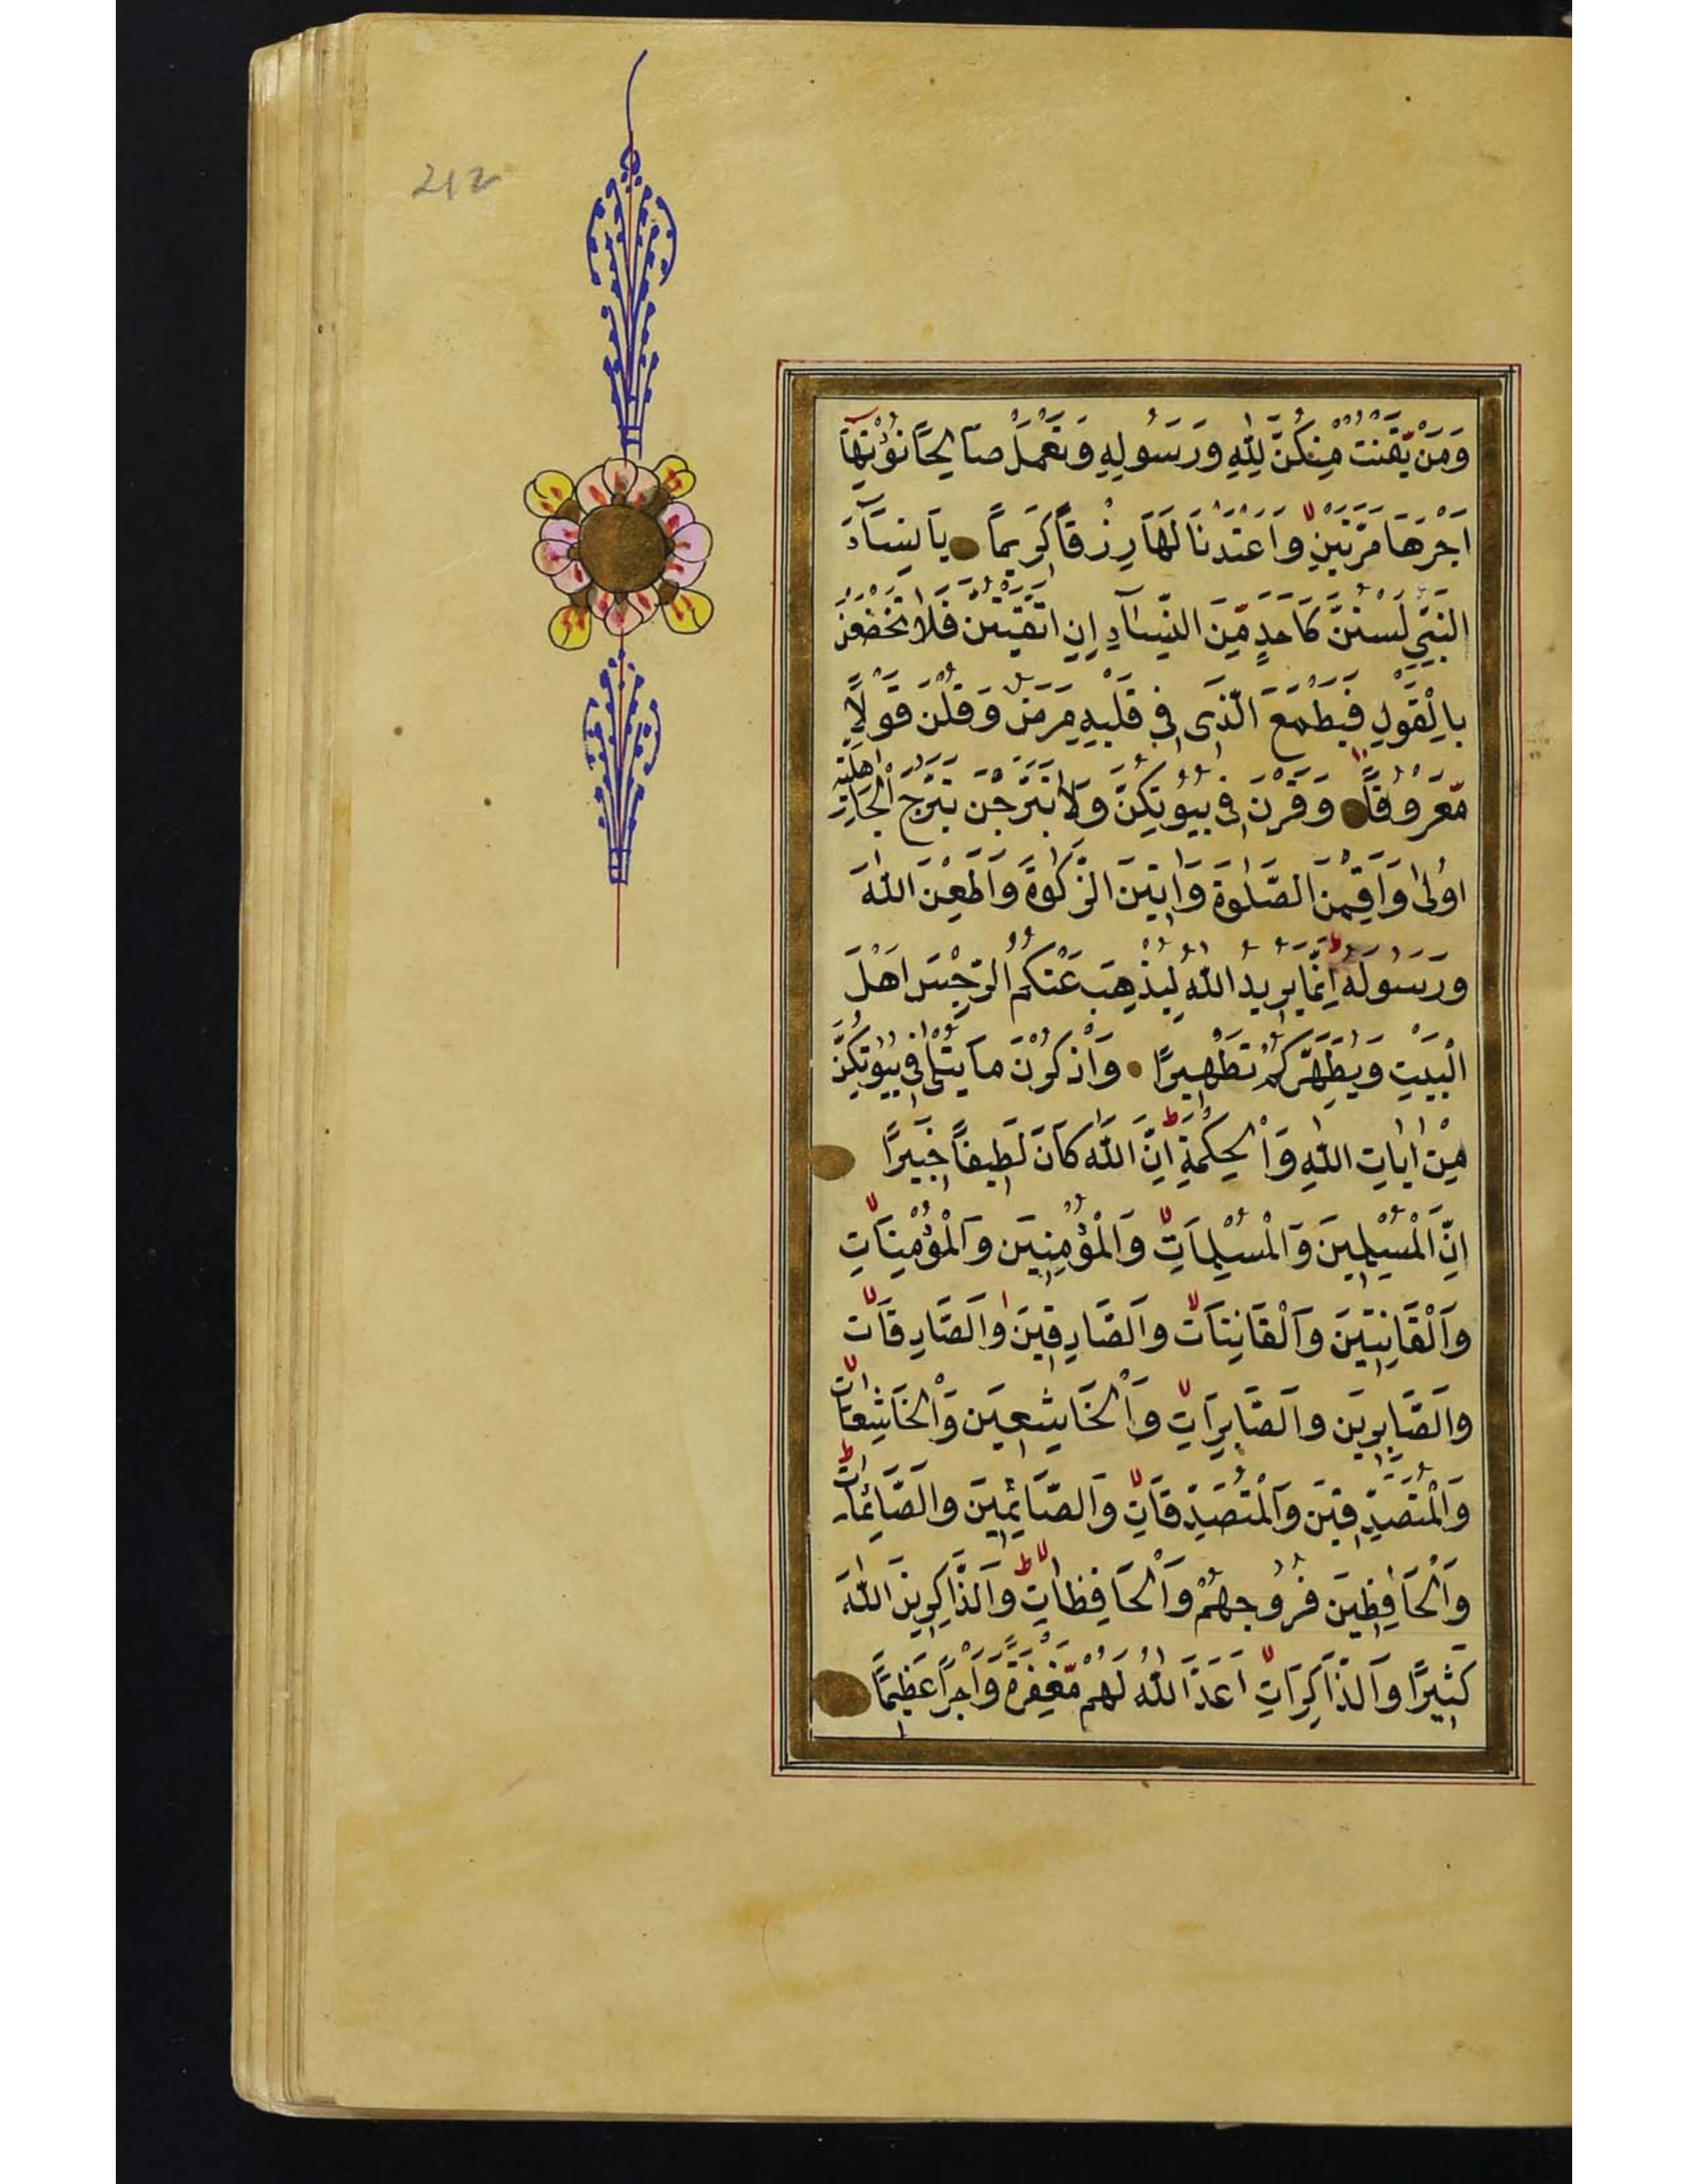 212
وَمَنْ يَقْنُتْ مِنْكُنَّ لِلّٰهِ وَرَسُولِهِ وَتَعْمَلْ صَالِحًا نُؤْتِهَا
اَجْرَهَا مَرَّتَيْنِ وَاَعْتَدْنَا لَهَا رِزْقًا كَرِيمًا يَا نِسَآءَ
النَّبِيِّ لَسْتُنَّ كَاَحَدٍ مِنَ النِّسَآءِ اِنِ اتَّقَيْتُنَّ فَلَا تَخْضَعْنَ
بِالْقَوْلِ فَيَطْمَعَ الَّذِى فِى قَلْبِهِ مَرَضٌ وَقُلْنَ قَوْلًا
مَعْرُوفًا وَقَرْنَ فِى بُيُوتِكُنَّ وَلَا تَبَرَّجْنَ تَبَرُّجَ الْجَاهِلِيَّةِ
الْاُولٰى وَاَقِمْنَ الصَّلٰوةَ وَاٰتِينَ الزَّكٰوةَ وَاَطِعْنَ اللّٰهَ
وَرَسُولَهُ اِنَّمَا يُرِيدُ اللّٰهُ لِيُذْهِبَ عَنْكُمُ الرِّجْسَ اَهْلَ
الْبَيْتِ وَيُطَهِّرَكُمْ تَطْهِيرًا وَاذْكُرْنَ مَا يُتْلٰى فِى بُيُوتِكُنَّ
مِنْ اٰيَاتِ اللّٰهِ وَالْحِكْمَةِ اِنَّ اللّٰهَ كَانَ لَطِيفًا خَبِيرًا
اِنَّ الْمُسْلِمِينَ وَالْمُسْلِمَاتِ وَالْمُؤْمِنِينَ وَالْمُؤْمِنَاتِ
وَالْقَانِتِينَ وَالْقَانِتَاتِ وَالصَّادِقِينَ وَالصَّادِقَاتِ
وَالصَّابِرِينَ وَالصَّابِرَاتِ وَالْخَاشِعِينَ وَالْخَاشِعَاتِ
وَالْمُتَصَدِّقِينَ وَالْمُتَصَدِّقَاتِ وَالصَّائِمِينَ وَالصَّائِمَاتِ
وَالْحَافِظِينَ فُرُوجَهُمْ وَالْحَافِظَاتِ وَالذَّاكِرِينَ اللّٰهَ
كَثِيرًا وَالذَّاكِرَاتِ اَعَدَّ اللّٰهُ لَهُمْ مَغْفِرَةً وَاَجْرًا عَظِيمًا